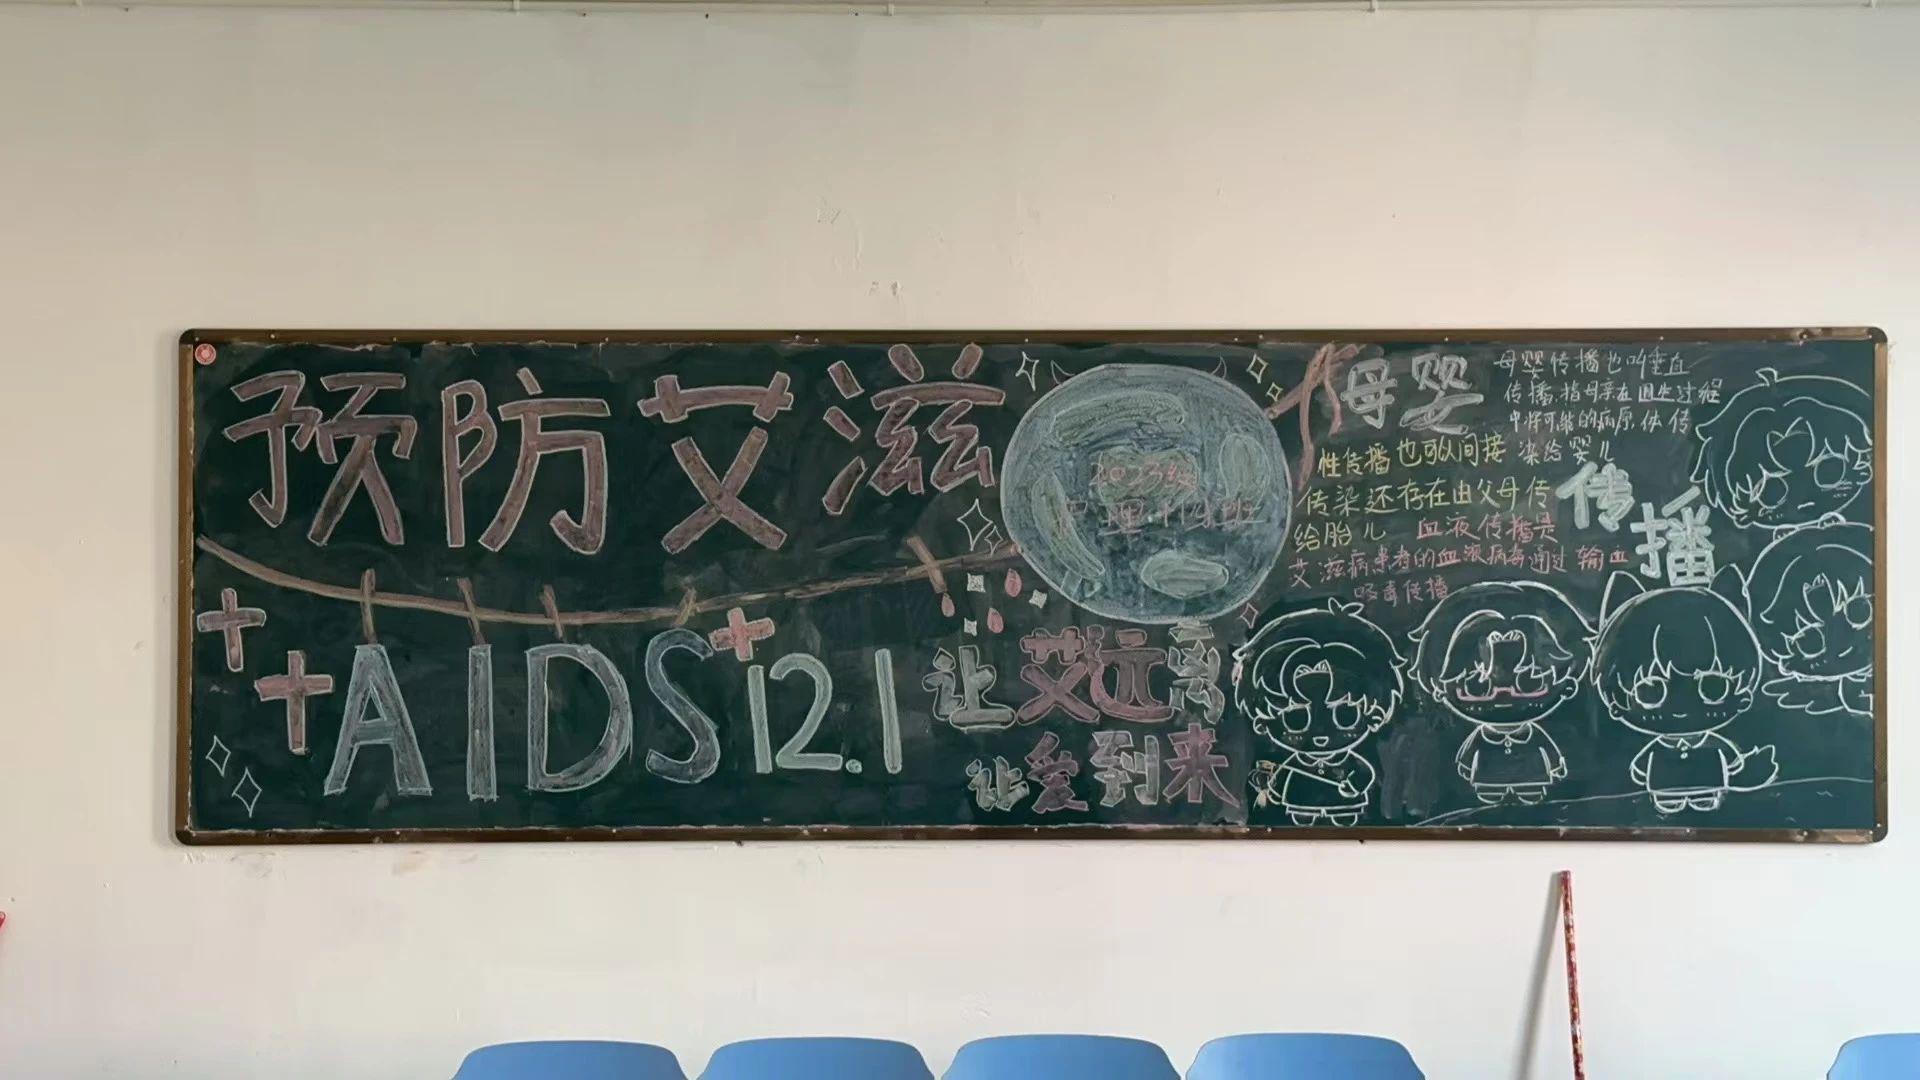 预防艾滋
AIDS 12.1
2023级
护理
班
让艾远离
让爱到来
母婴
传播
母婴传播也叫垂直
传播.指母亲在围生过程
中将可能的病原体传
染给婴儿
性传播也可以间接
传染还存在由父母传
给胎儿
血液传播是
艾滋病患者的血液病毒通过输血
吸毒传播